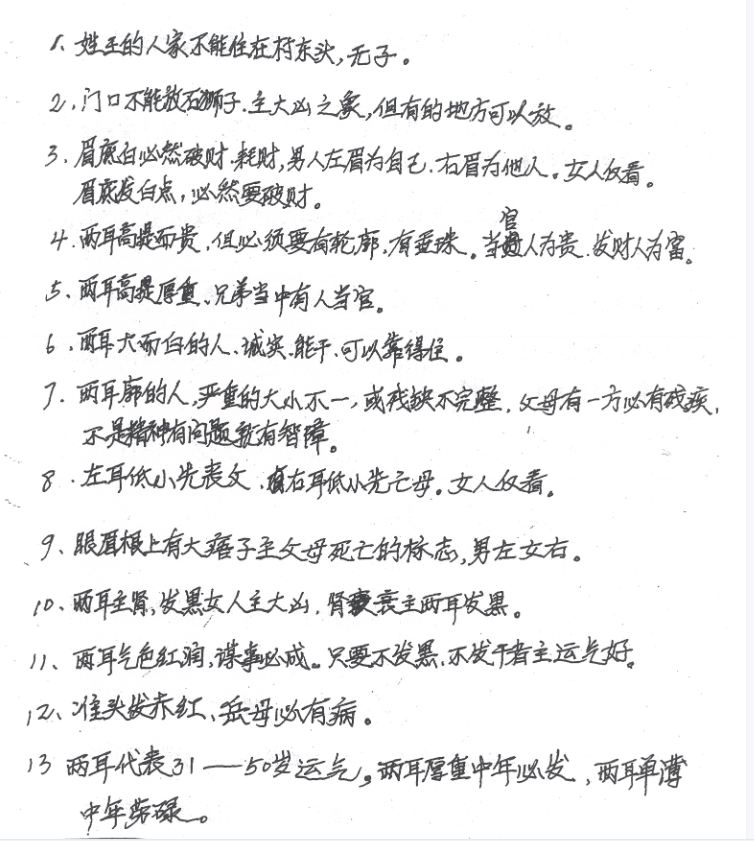 1、姓王的人家不能住在村东头,无子。
2、门口不能放石狮子、主大凶之象,但有的地方可以放。
3、眉底白必然破财、耗财,男人左眉为自己、右眉为他人。女人反看。
眉底发白点,必然要破财。
4、两耳高提而贵、但必须要有轮廓、有垂珠。当官人为贵、发财人为富。
5、两耳高提厚重、兄弟当中有人当官。
6、两耳大而白的人、诚实、能干、可以靠得住。
7、两耳廓的人,严重的大小不一,或残缺不完整、父母有一方必有残疾、
不是精神有问题就有智障。
8、左耳低小先丧父、右耳低小先亡母。女人反看。
9、眼眉根上有大痦子主父母死亡的标志,男左女右。
10、两耳主肾,发黑女人主大凶、肾衰主两耳发黑。
11、两耳气色红润,谋事必成。只要不发黑、不发干者主运气好。
12、准头发赤红、岳母必有病。
13 两耳代表31——50岁运气。两耳厚重中年必发,两耳单薄
中年劳碌。